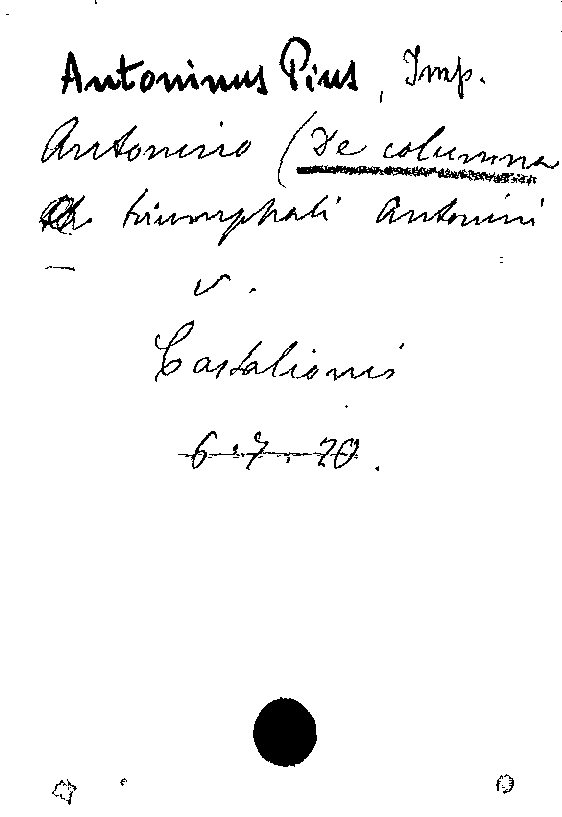 Antoninus Pius, Imp.
Antonino (De columna
triumphali Antonini
v.
Castalionis
6.7.20.